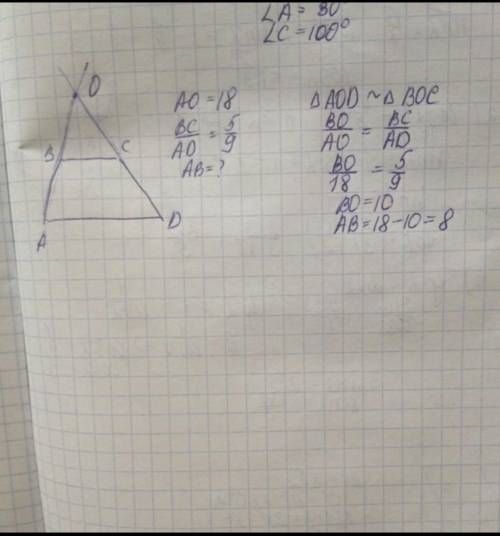 ∠A = 80
∠C = 100°
O
B
C
A
D
AO = 18
BC/AD = 5/9
AB = ?
△AOD ~ △BOC
BO/AO = BC/AD
BO/18 = 5/9
BO = 10
AB = 18 - 10 = 8